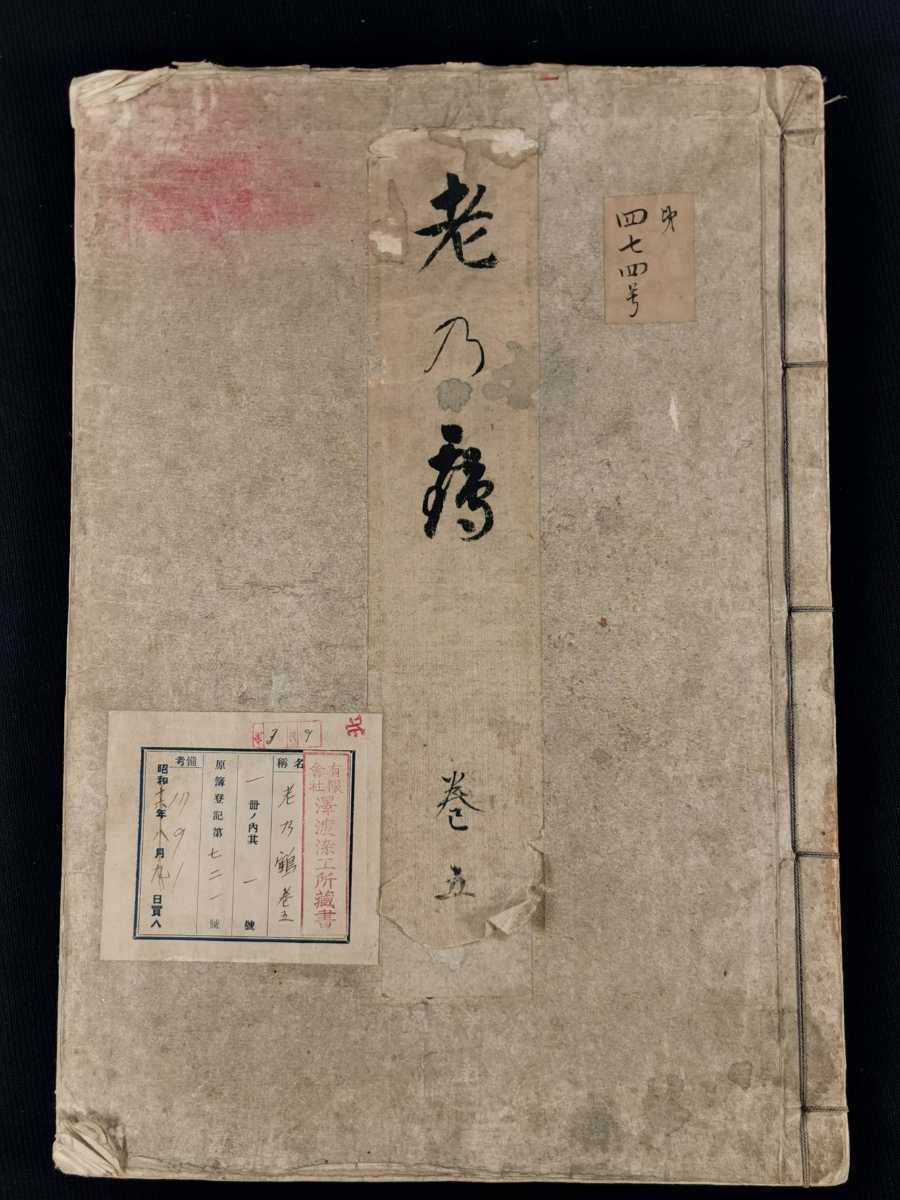 第
四七四号
老乃鶴
巻五
有限
會社
澤渡染工所藏書
名稱
老乃鶴巻五
一冊ノ內其一號
原簿登記第七二一號
備考
昭和十六年八月九日買入